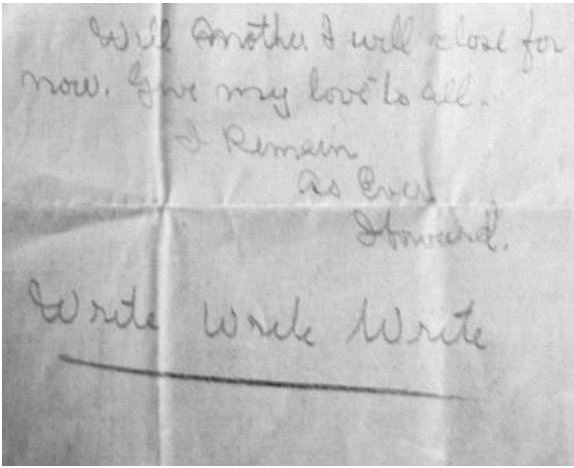 Well Mother I will close for
now. Give my love to all.
I Remain
As Ever
Howard.
Write Write Write